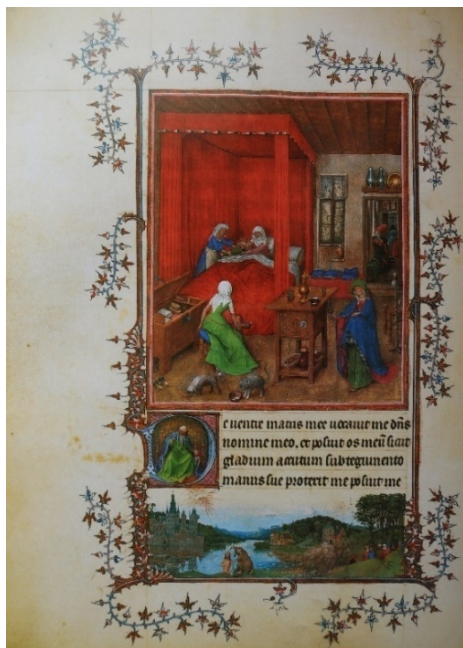 e ventre matris mee vocavit me dns
nomine meo. et posuit os meū sicut
gladium acutum sub tegumento
manus sue protexit me posuit me